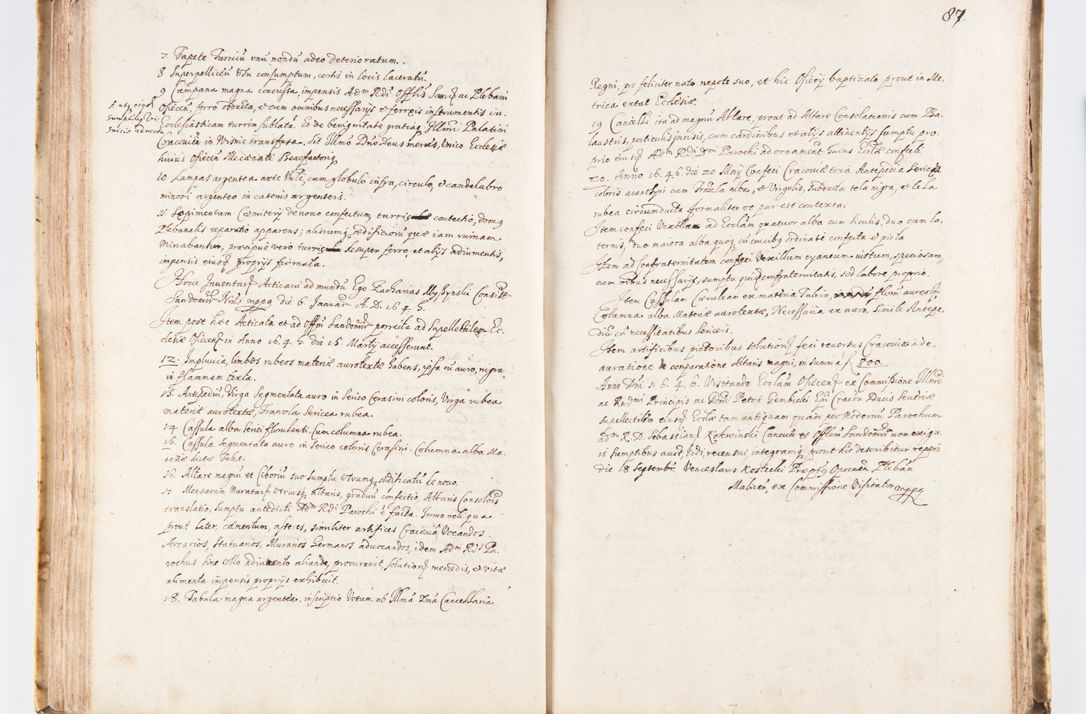 87.
7 Tapete Turricũ unũ nondũ adeo deterioratum.
8 Superpelliciũ Usu consumptum, certis in locis laceratũ.
9 Campana magna concussa, impensis Adm Rdi Offlis Sand ac Plebani
Osiecen, ferro obvoluta, et cum omnibus necessarijs et ferreis instrumentis in
Ecclesiasticam turrim sublata. Et de benignitate gratiaq Illmi Palatini
Cracoviæ in Ursnic transfusa. Sit Illmo Dno Deus merces, Unico Ecclesiæ
huius Osiecen Mecænati Benefactoriq
10 Lampas argentea arte, cum globulo infra, circulo, et candelabro
minori argenteo in catenis argenteis.
11 Sepimentum Cæmiterij de novo confectum, turris contectio, domq
Plebanalis reparatio apparens; aliorumq ædificiorũ quæ iam ruinam
minabantur, præcipuè vero turris semper ferro, et alijs adiumentis,
impensis eiusq proprijs firmata.
Horũ Inventarij Acticavi ad mundũ Ego Zacharias Consist
Sandomir Nots mppa die 6 Januar A.D. 1645.
Item post hæc Acticata et ad Offm Sandomir porrecta ad Supellectilem Ec-
clesiæ Osiecen in Anno 1645 die 16 Martij accesserunt.
12. Impluvia, limbos rubeos materiæ aurotextæ habens, ipsa cũ auro, nigra
in flammam texta.
13. Antepediũ, Virga Segmentata auro in Serico Cerasini coloris, Virga rubea
materiæ aurotextæ, Franzla Sericea rubea.
14 Cassula alba serici florulenti. Cum columna rubea.
15. Cassula segmentata auro in Serico coloris Cerasini. Columna alba Ma-
teriæ dictæ Teht.
16. Altare magnũ et Ciboriũ suo sumptu utrunq ædificatũ de novo.
17 Mensarum Muratarũ utriusq Altaris, graduũ confectio, Altaris Consolois
translatio, sumptu antedicti Adm Rdi Parochi ẽ facta. Immo reliqua
prout later, cæmentum, asseres, similiter artifices Cracoviâ Vocandos
Arcarios, Statuarios, Murarios Germanos advocandos, idem Adm Rds Pa-
rochus sine ullo adiumento aliunde, procuravit, solutionẽ mercedis, et vitæ
alimenta impensis proprijs exhibuit.
18. Tabula magna argentea, inscriptio Votum ab Illma Dna Cancellaria
Regni, pr feliciter nato nepote suo, et hic Osiecij baptizato prout in Me-
trica extat Ecclesiæ.
19 Cancelli ita ad magnũ Altare, prout ad Altare Consolationis cum Ba-
laustris, porticulis incisis, cum cardinibus et alijs attinentijs sumptu pro-
prio eiusdem Adm Rdi Dni Parochi ad ornament huius Eccliæ confecti
20. Anno 1646. die 20 May Confeci Cracoviæ tria Antepedia Sericea
coloris cum Frãzla alba, et Virgulis, Subducta tela nigra, et tela
rubea circumducta formaliter ut par est contexta.
Item confeci Vexillum ad Ecclam quatuor alba cum hiculis, duo cum la-
ternis, duo maiora alba quoq cũ crucibq ordinatè confecta et picta
Item ad Confraternitatem confeci Vexillum cyaneum mistum, speciosum,
cum oĩbus necessarijs, sumptu quidẽ confraternitatis, sed labore proprio.
Item Cassulam Cæruleam ex materia Tabin florũ aureorũ
Columna alba Materiæ aurotextæ, Necessaria ex auro. Simile Antepe-
diũ cũ necessitatibus Sericeis.
Item artificibus pictoribus solutionẽ feci reversus Cracoviâ de
auratione et comparatione Altaris magni, in summa f. 800.
Anno Dni 1646. Visitando Ecclam Osiecen ex Commissione Illmi
ac Rndmi Principis ac Dni Petri Gembicki Epi Cracon Ducis Severiæ
Supellectilem eiusq Eccliæ tam antiquam quam per modernũ Parochum
Adm R.D. Sebastianũ Kokwinski Canonicũ et Offlem Sandomir non exigu-
is sumptibus auctã vidi, recensui, integramq prout hic describitur reperi
die 18 Septembr Venceslaus Kostecki Præptus Opocnen Pleban
Malicen, ex Commissione Visitator mppa